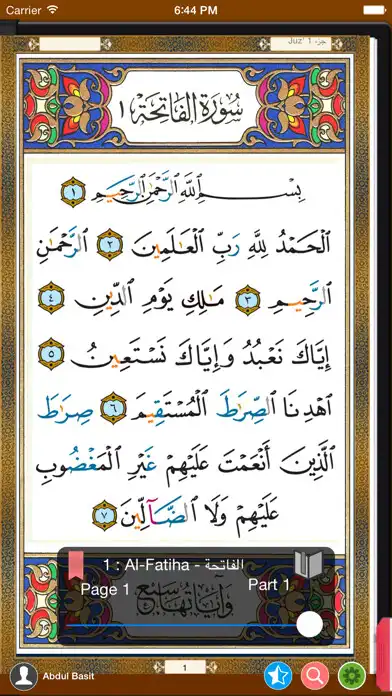 Carrier 6:44 PM
Juz' 1 جزء
سُورَةُ الفَاتِحَةِ ١
بِسْمِ اللَّهِ الرَّحْمَٰنِ الرَّحِيمِ ١
الْحَمْدُ لِلَّهِ رَبِّ الْعَالَمِينَ ٢ الرَّحْمَٰنِ
الرَّحِيمِ ٣ مَالِكِ يَوْمِ الدِّينِ ٤
إِيَّاكَ نَعْبُدُ وَإِيَّاكَ نَسْتَعِينُ ٥
اهْدِنَا الصِّرَاطَ الْمُسْتَقِيمَ ٦ صِرَاطَ
الَّذِينَ أَنْعَمْتَ عَلَيْهِمْ غَيْرِ الْمَغْضُوبِ
عَلَيْهِمْ وَلَا الضَّالِّينَ ٧
1 : Al-Fatiha - الفاتحة
Page 1 Part 1
وآياتها سبع
1
Abdul Basit